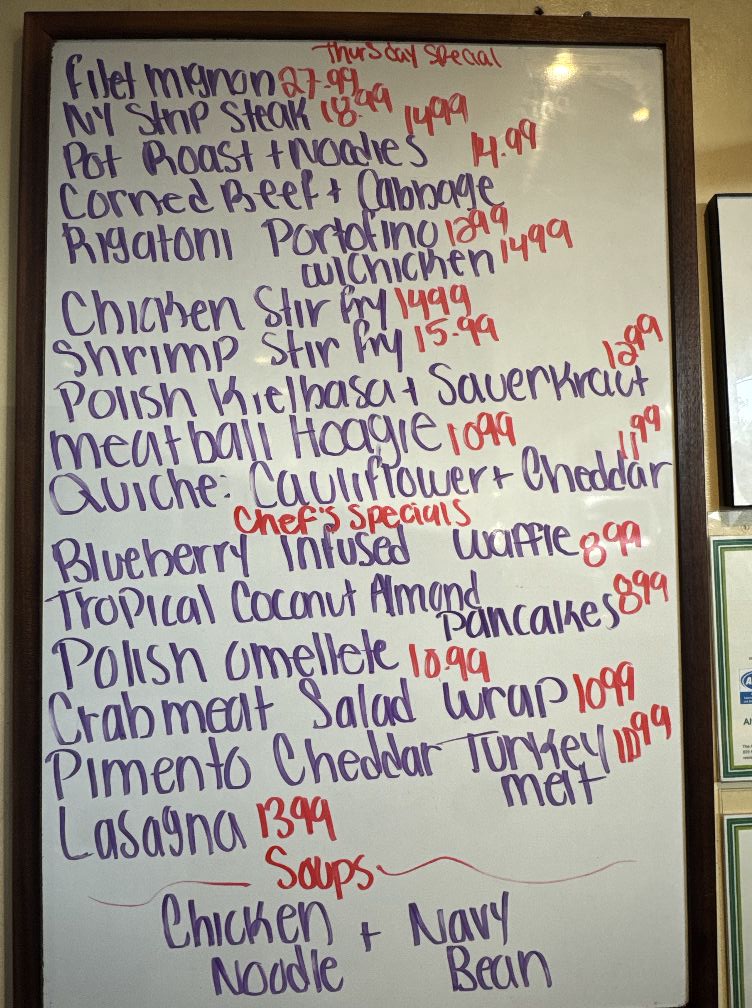 Thursday Special
Filet Mignon 27.99
NY Strip Steak 18.99
Pot Roast + Noodles 1499
Corned Beef + Cabbage 14.99
Rigatoni Portofino 1299
w/chicken 1499
Chicken Stir Fry 1499
Shrimp Stir Fry 15.99
Polish Kielbasa + Sauerkraut 1299
Meatball Hoagie 1099
Quiche: Cauliflower + Cheddar 1199
Chef's Specials
Blueberry Infused Waffle 899
Tropical Coconut Almond
Pancakes 899
Polish Omellete 10.99
Crabmeat Salad Wrap 1099
Pimento Cheddar Turkey
melt
Lasagna 1399
Soups
Chicken + Navy
Noodle Bean